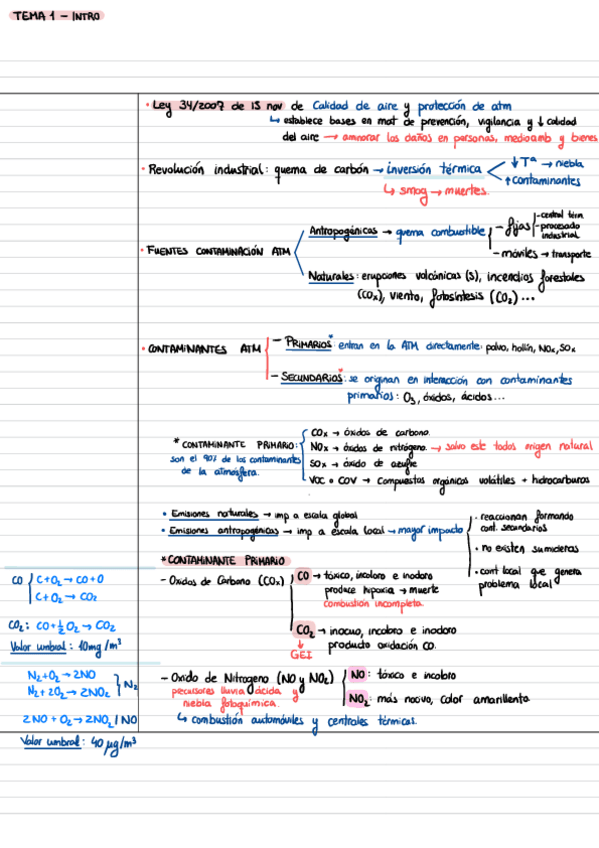 TEMA 1 - INTRO
· Ley 34/2007 de 15 nov de Calidad de aire y protección de atm
↳ establece bases en mat de prevención, vigilancia y ↓ calidad
del aire → amnorar los daños en personas, medioamb y bienes
· Revolución industrial: quema de carbón → inversión térmica
↓ Tª → niebla
↑ contaminantes
↳ smog → muertes.
· FUENTES CONTAMINACIÓN ATM
Antropogénicas → quema combustible
- fijas
- central térm
- procesado
industrial
- móviles → transporte
Naturales: erupciones volcánicas (S), incendios forestales
(COx), viento, fotosíntesis (CO2) ...
· CONTAMINANTES ATM
- PRIMARIOS*: entran en la ATM directamente: polvo, hollín, NOx, SOx
- SECUNDARIOS*: se originan en interacción con contaminantes
primarios: O3, óxidos, ácidos...
* CONTAMINANTE PRIMARIO:
son el 90% de los contaminantes
de la atmósfera.
COx → óxidos de carbono.
NOx → óxidos de nitrógeno. → salvo este todos origen natural
SOx → óxido de azufre
VOC o COV → Compuestos orgánicos volátiles + hidrocarburos
· Emisiones naturales → imp a escala global
· Emisiones antropogénicas → imp a escala local → mayor impacto
· reaccionan formando
cont. secundarios
· no existen sumideros
· cont local que genera
problema local
* CONTAMINANTE PRIMARIO
- Oxidos de Carbono (COx)
CO → tóxico, incoloro e inodoro
produce hipoxia → muerte
combustión incompleta.
CO2 → inocuo, incoloro e inodoro
producto oxidación CO.
↓
GEI
CO
C+O2 → CO+O
C+O2 → CO2
CO2: CO+½O2 → CO2
Valor umbral: 10mg/m³
- Oxido de Nitrogeno (NO y NO2)
precursores lluvia ácida y
niebla fotoquímica.
↳ combustión automóviles y centrales térmicas.
NO: tóxico e incoloro
NO2: más nocivo, color amarillento
N2+O2 → 2NO
N2+2O2 → 2NO2
N2
2NO + O2 → 2NO2 / NO
Valor umbral: 40 µg/m³